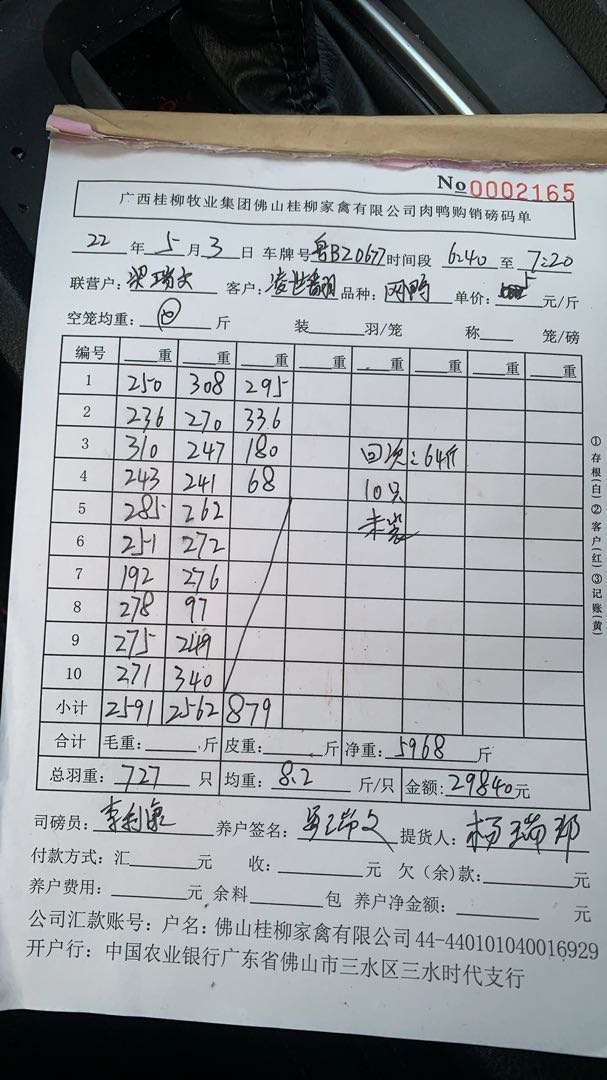 No 0002165
广西桂柳牧业集团佛山桂柳家禽有限公司肉鸭购销磅码单
22 年 5 月 3 日 车牌号 粤B20677 时间段 6:40 至 7:20
联营户: 梁瑞文 客户: 品种: 网鸭 单价: 5 元/斤
空笼均重: 斤 装 羽/笼 称 笼/磅
编号 重 重 重 重 重 重 重 重
1 250 308 295
2 236 270 336
3 310 247 180 回次:64斤
4 243 241 68 10只
5 285 262
6 251 272
7 192 276
8 278 97
9 275 249
10 271 340
小计 2591 2562 879
合计 毛重: 斤 皮重: 斤 净重: 5968 斤
总羽重: 727 只 均重: 8.2 斤/只 金额: 29840元
司磅员: 养户签名: 提货人: 杨瑞邦
付款方式: 汇 元 收: 元 欠(余)款: 元
养户费用: 元 余料 包 养户净金额: 元
公司汇款账号: 户名: 佛山桂柳家禽有限公司 44-440101040016929
开户行: 中国农业银行广东省佛山市三水区三水时代支行
①存根(白)②客户(红)③记账(黄)